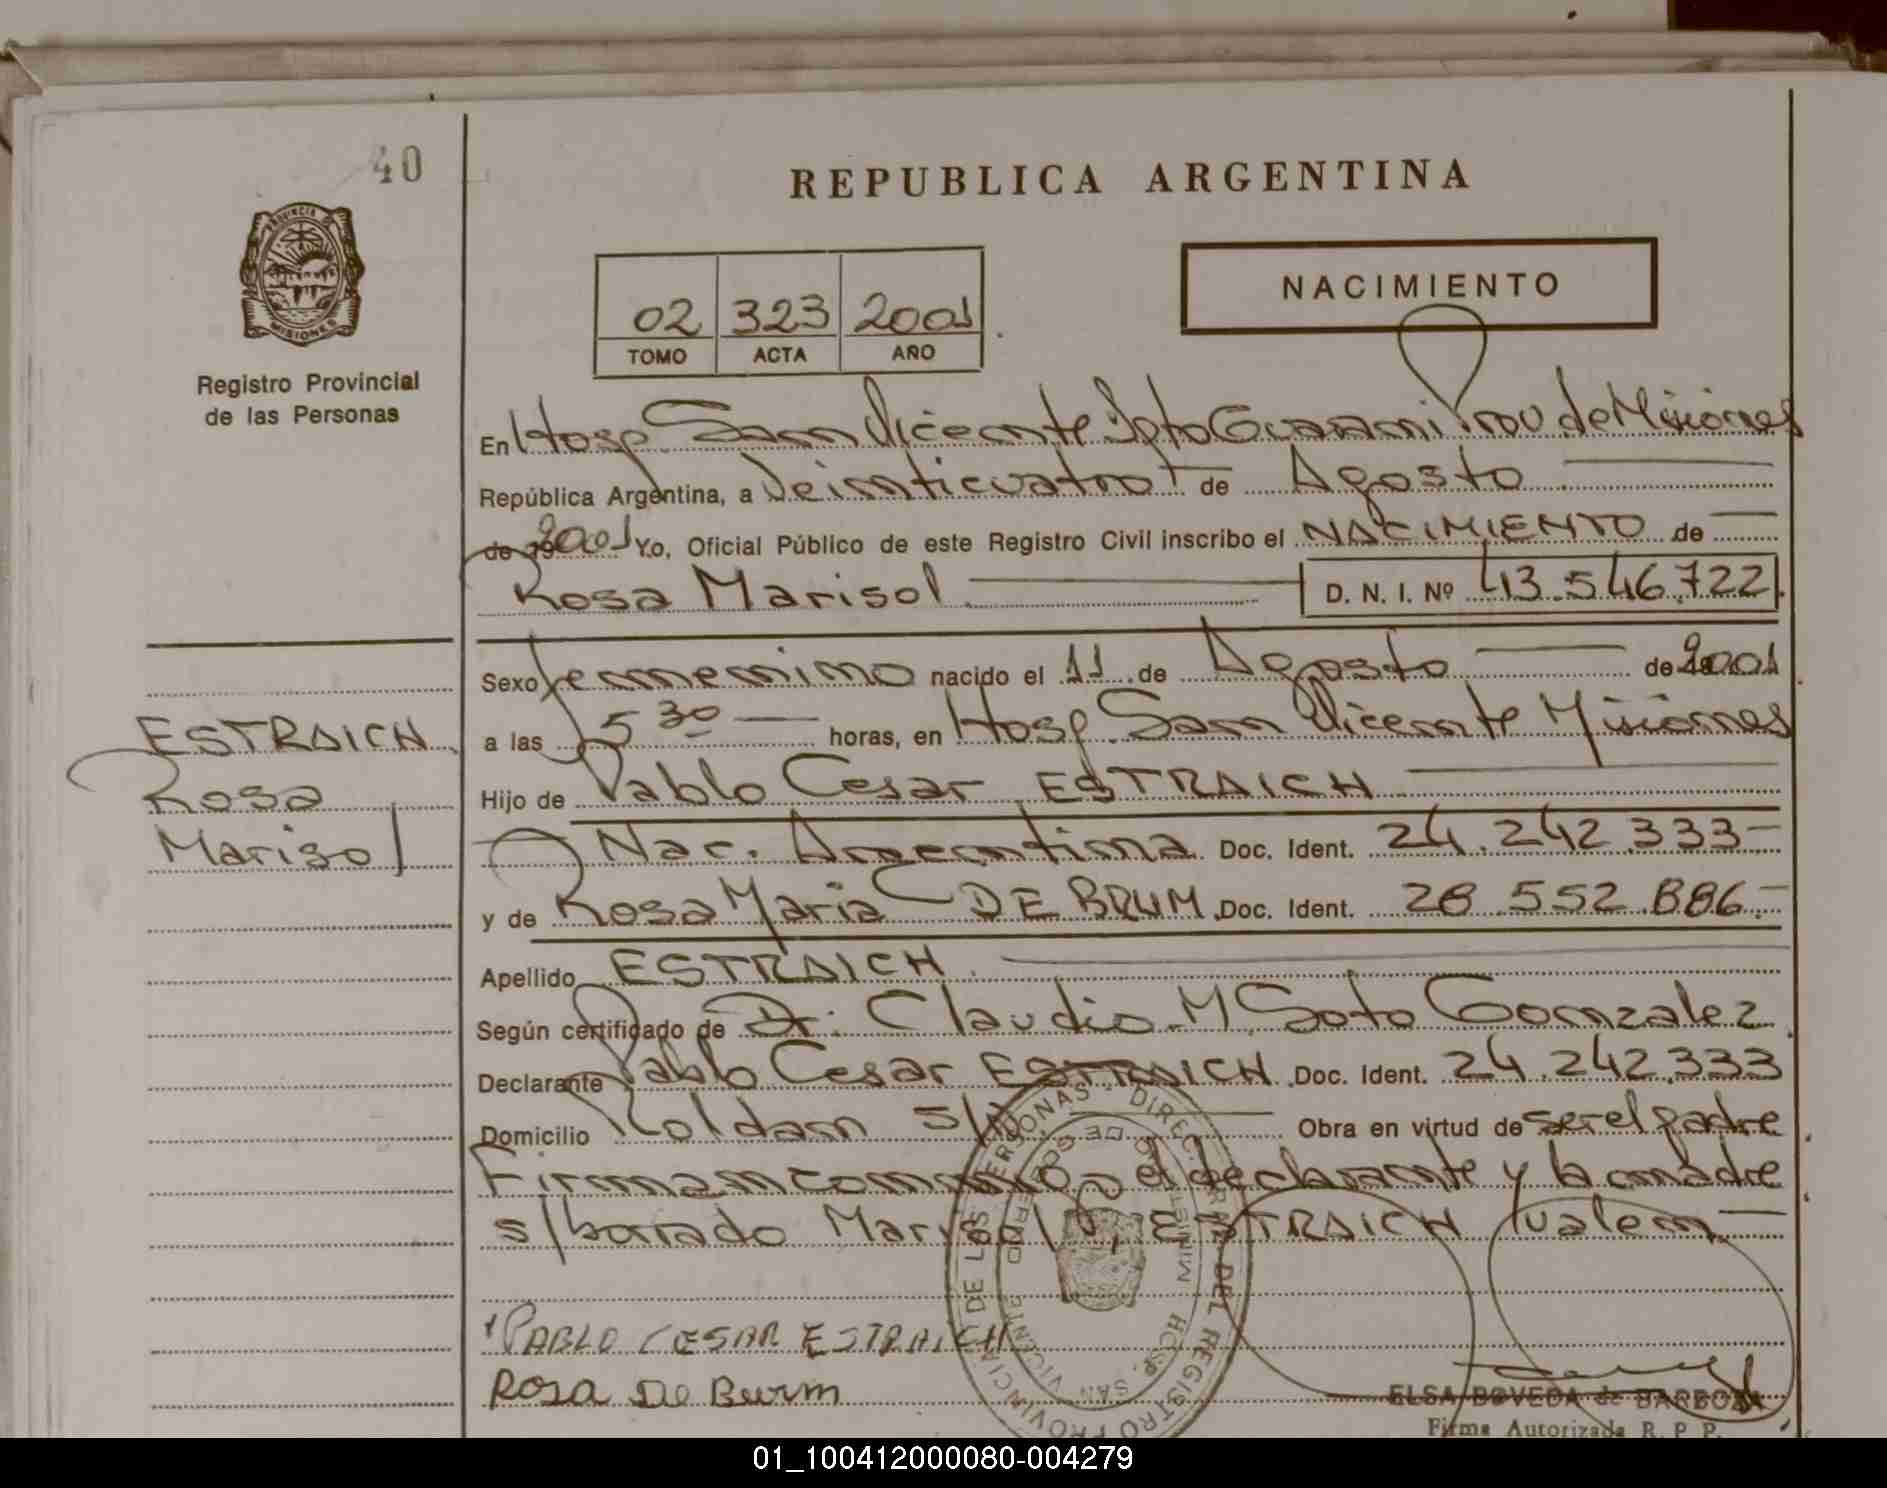 40
REPUBLICA ARGENTINA
PROVINCIA DE
MISIONES
02 323 2001
TOMO ACTA AÑO
NACIMIENTO
Registro Provincial
de las Personas
En Hosp San Vicente Dpto Guarani Prov de Misiones
República Argentina, a Veinticuatro de Agosto
de 19 2001 Yo, Oficial Público de este Registro Civil inscribo el NACIMIENTO de
Rosa Marisol D. N. I. Nº 43.546.722
Sexo femenino nacido el 11 de Agosto de 2001
a las 5 30 horas, en Hosp. San Vicente Misiones
ESTRAICH
Rosa
Marisol
Hijo de Pablo Cesar ESTRAICH
Nac. Argentina Doc. Ident. 24.242.333
y de Rosa Maria DE BRUM Doc. Ident. 28.552.886
Apellido ESTRAICH
Según certificado de Dr. Claudio M Soto Gonzalez
Declarante Pablo Cesar ESTRAICH Doc. Ident. 24.242.333
Domicilio Roldan S/N Obra en virtud de ser el padre
Firman conmigo el declarante y la madre
s/borrado Marisol, ESTRAICH valen
PABLO CESAR ESTRAICH
Rosa De Burm
DIREC. GRAL. DEL REGISTRO PROVINCIAL DE LAS PERSONAS
HOSP. SAN VICENTE
ELSA BOVEDA de BARBOZA
Firma Autorizada R. P. P.
01_100412000080-004279